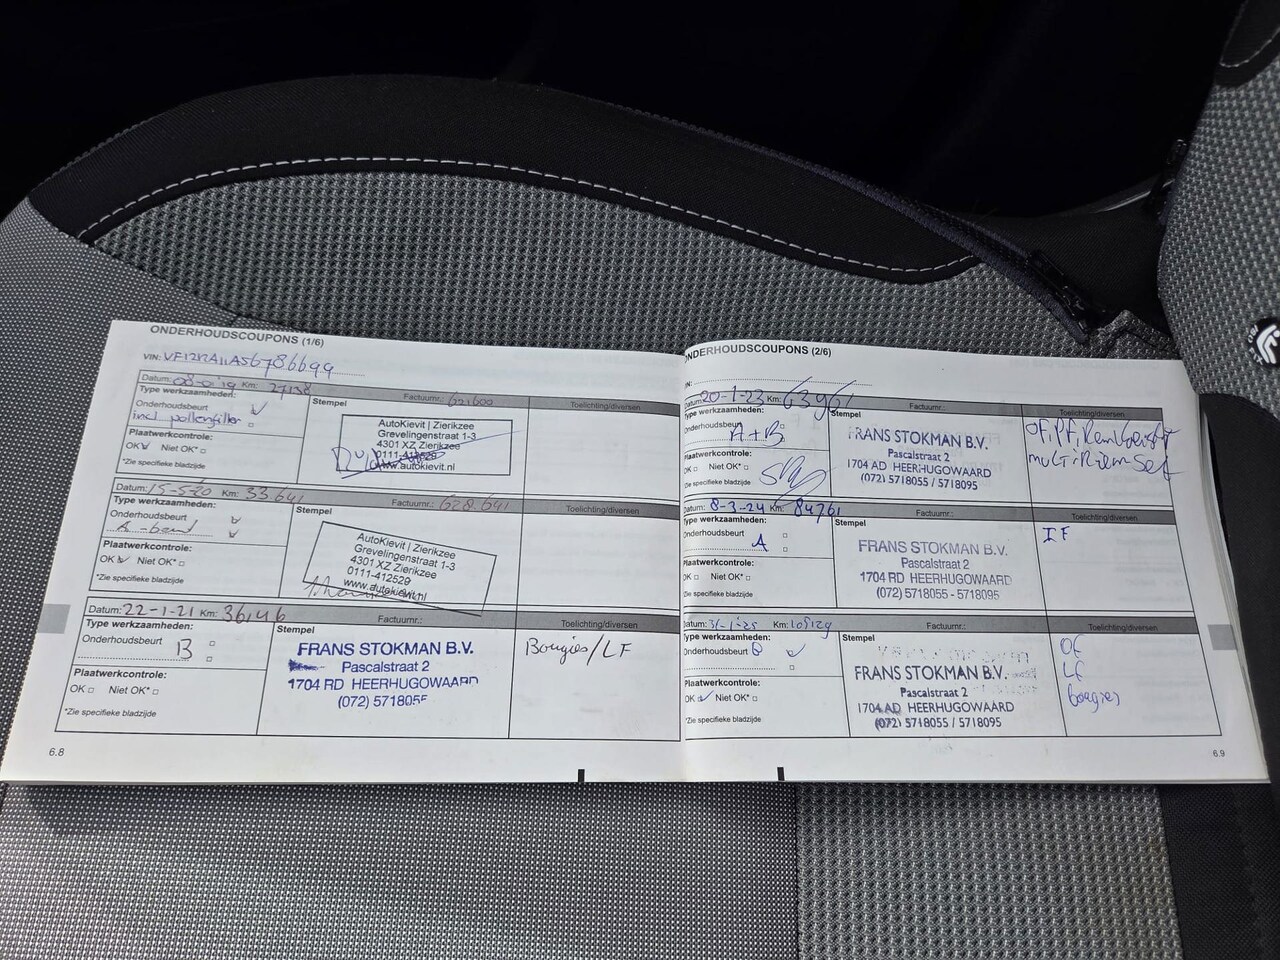 ONDERHOUDSCOUPONS (1/6)
VIN: VF12RA11A56786699
Datum: Km: 27138 Factuurnr.: 621600 Toelichting/diversen
Type werkzaamheden: Stempel
Onderhoudsbeurt
incl pollenfilter
Plaatwerkcontrole:
OK Niet OK*
*Zie specifieke bladzijde
AutoKievit | Zierikzee
Grevelingenstraat 1-3
4301 XZ Zierikzee
0111-412529
www.autokievit.nl
Datum: 15-5-20 Km: 33.641 Factuurnr.: 628641 Toelichting/diversen
Type werkzaamheden: Stempel
Onderhoudsbeurt
Plaatwerkcontrole:
OK Niet OK*
*Zie specifieke bladzijde
AutoKievit | Zierikzee
Grevelingenstraat 1-3
4301 XZ Zierikzee
0111-412529
www.autokievit.nl
Datum: 22-1-21 Km: 36146 Factuurnr.: Toelichting/diversen
Type werkzaamheden: Stempel
Onderhoudsbeurt B
Plaatwerkcontrole:
OK Niet OK*
*Zie specifieke bladzijde
FRANS STOKMAN B.V.
Pascalstraat 2
1704 RD HEERHUGOWAARD
(072) 5718055
Bougies/LF
6.8
ONDERHOUDSCOUPONS (2/6)
Datum: 20-1-23 Km: 63961 Factuurnr.: Toelichting/diversen
Type werkzaamheden: Stempel
Onderhoudsbeurt A+B
Plaatwerkcontrole:
OK Niet OK*
*Zie specifieke bladzijde
FRANS STOKMAN B.V.
Pascalstraat 2
1704 AD HEERHUGOWAARD
(072) 5718055 / 5718095
OF, PF, Remvloeistof
multiriem set
Datum: 8-3-24 Km: 84761 Factuurnr.: Toelichting/diversen
Type werkzaamheden: Stempel
Onderhoudsbeurt A
Plaatwerkcontrole:
OK Niet OK*
*Zie specifieke bladzijde
FRANS STOKMAN B.V.
Pascalstraat 2
1704 RD HEERHUGOWAARD
(072) 5718055 - 5718095
IF
Datum: 31-1-25 Km: 105129 Factuurnr.: Toelichting/diversen
Type werkzaamheden: Stempel
Onderhoudsbeurt B
Plaatwerkcontrole:
OK Niet OK*
*Zie specifieke bladzijde
FRANS STOKMAN B.V.
Pascalstraat 2
1704 AD HEERHUGOWAARD
(072) 5718055 / 5718095
OF
LF
6.9